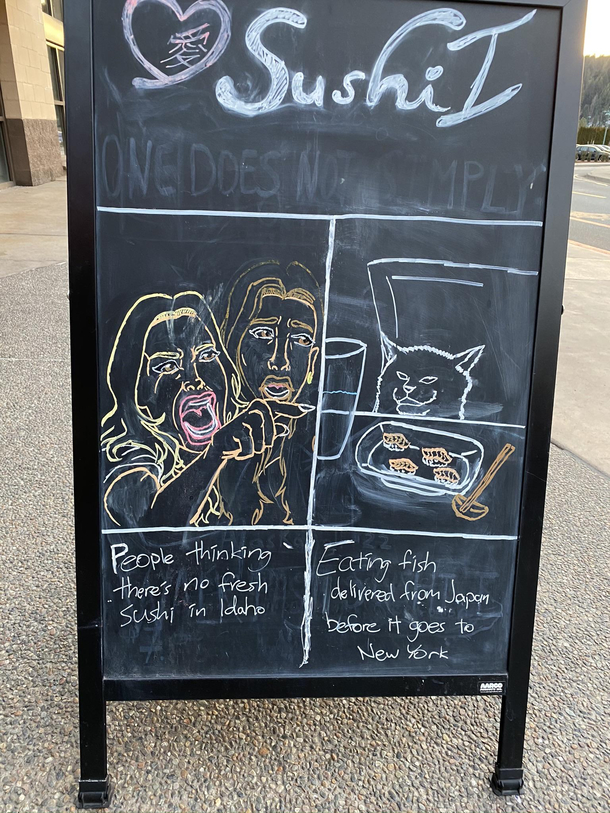 愛
Sushi I
ONE DOES NOT SIMPLY
People thinking
there's no fresh
sushi in Idaho
Eating fish
delivered from Japan
before it goes to
New York
AARCO